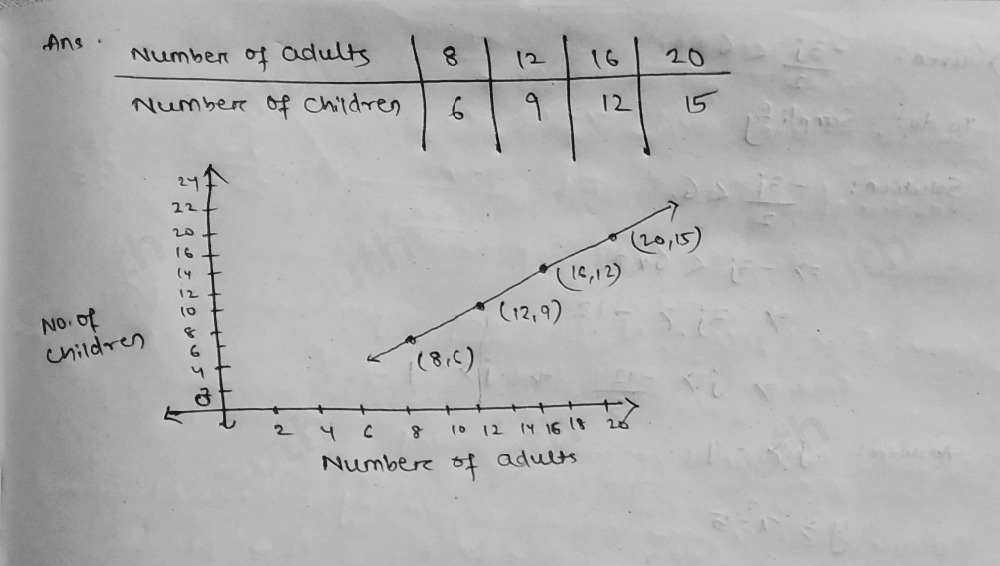 Ans. Number of adults 8 12 16 20
Number of children 6 9 12 15
24
22
20
16
14
12
10
8
6
4
2
No. of
children
(20,15)
(16,12)
(12,9)
(8,6)
2 4 6 8 10 12 14 16 18 20
Number of adults